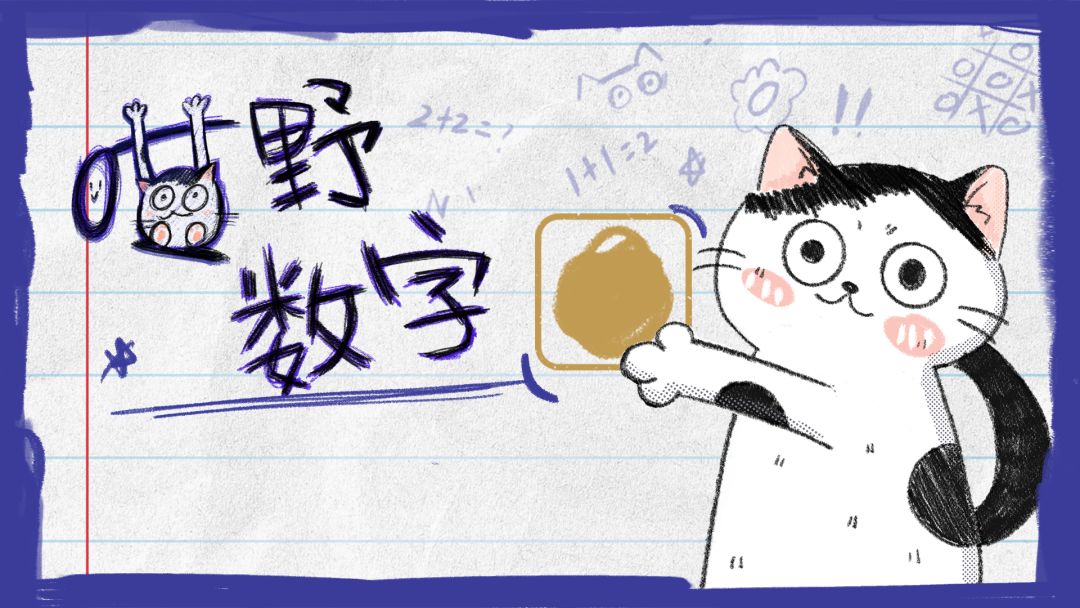 野
数字
2+2=?
1+1=2
!!